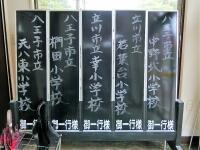 八王子市立
中野北小学校
御一行様
立川市立
若葉台小学校
御一行様
立川市立
幸小学校
御一行様
八王子市立
椚田小学校
御一行様
八王子市立
元八東小学校
御一行様